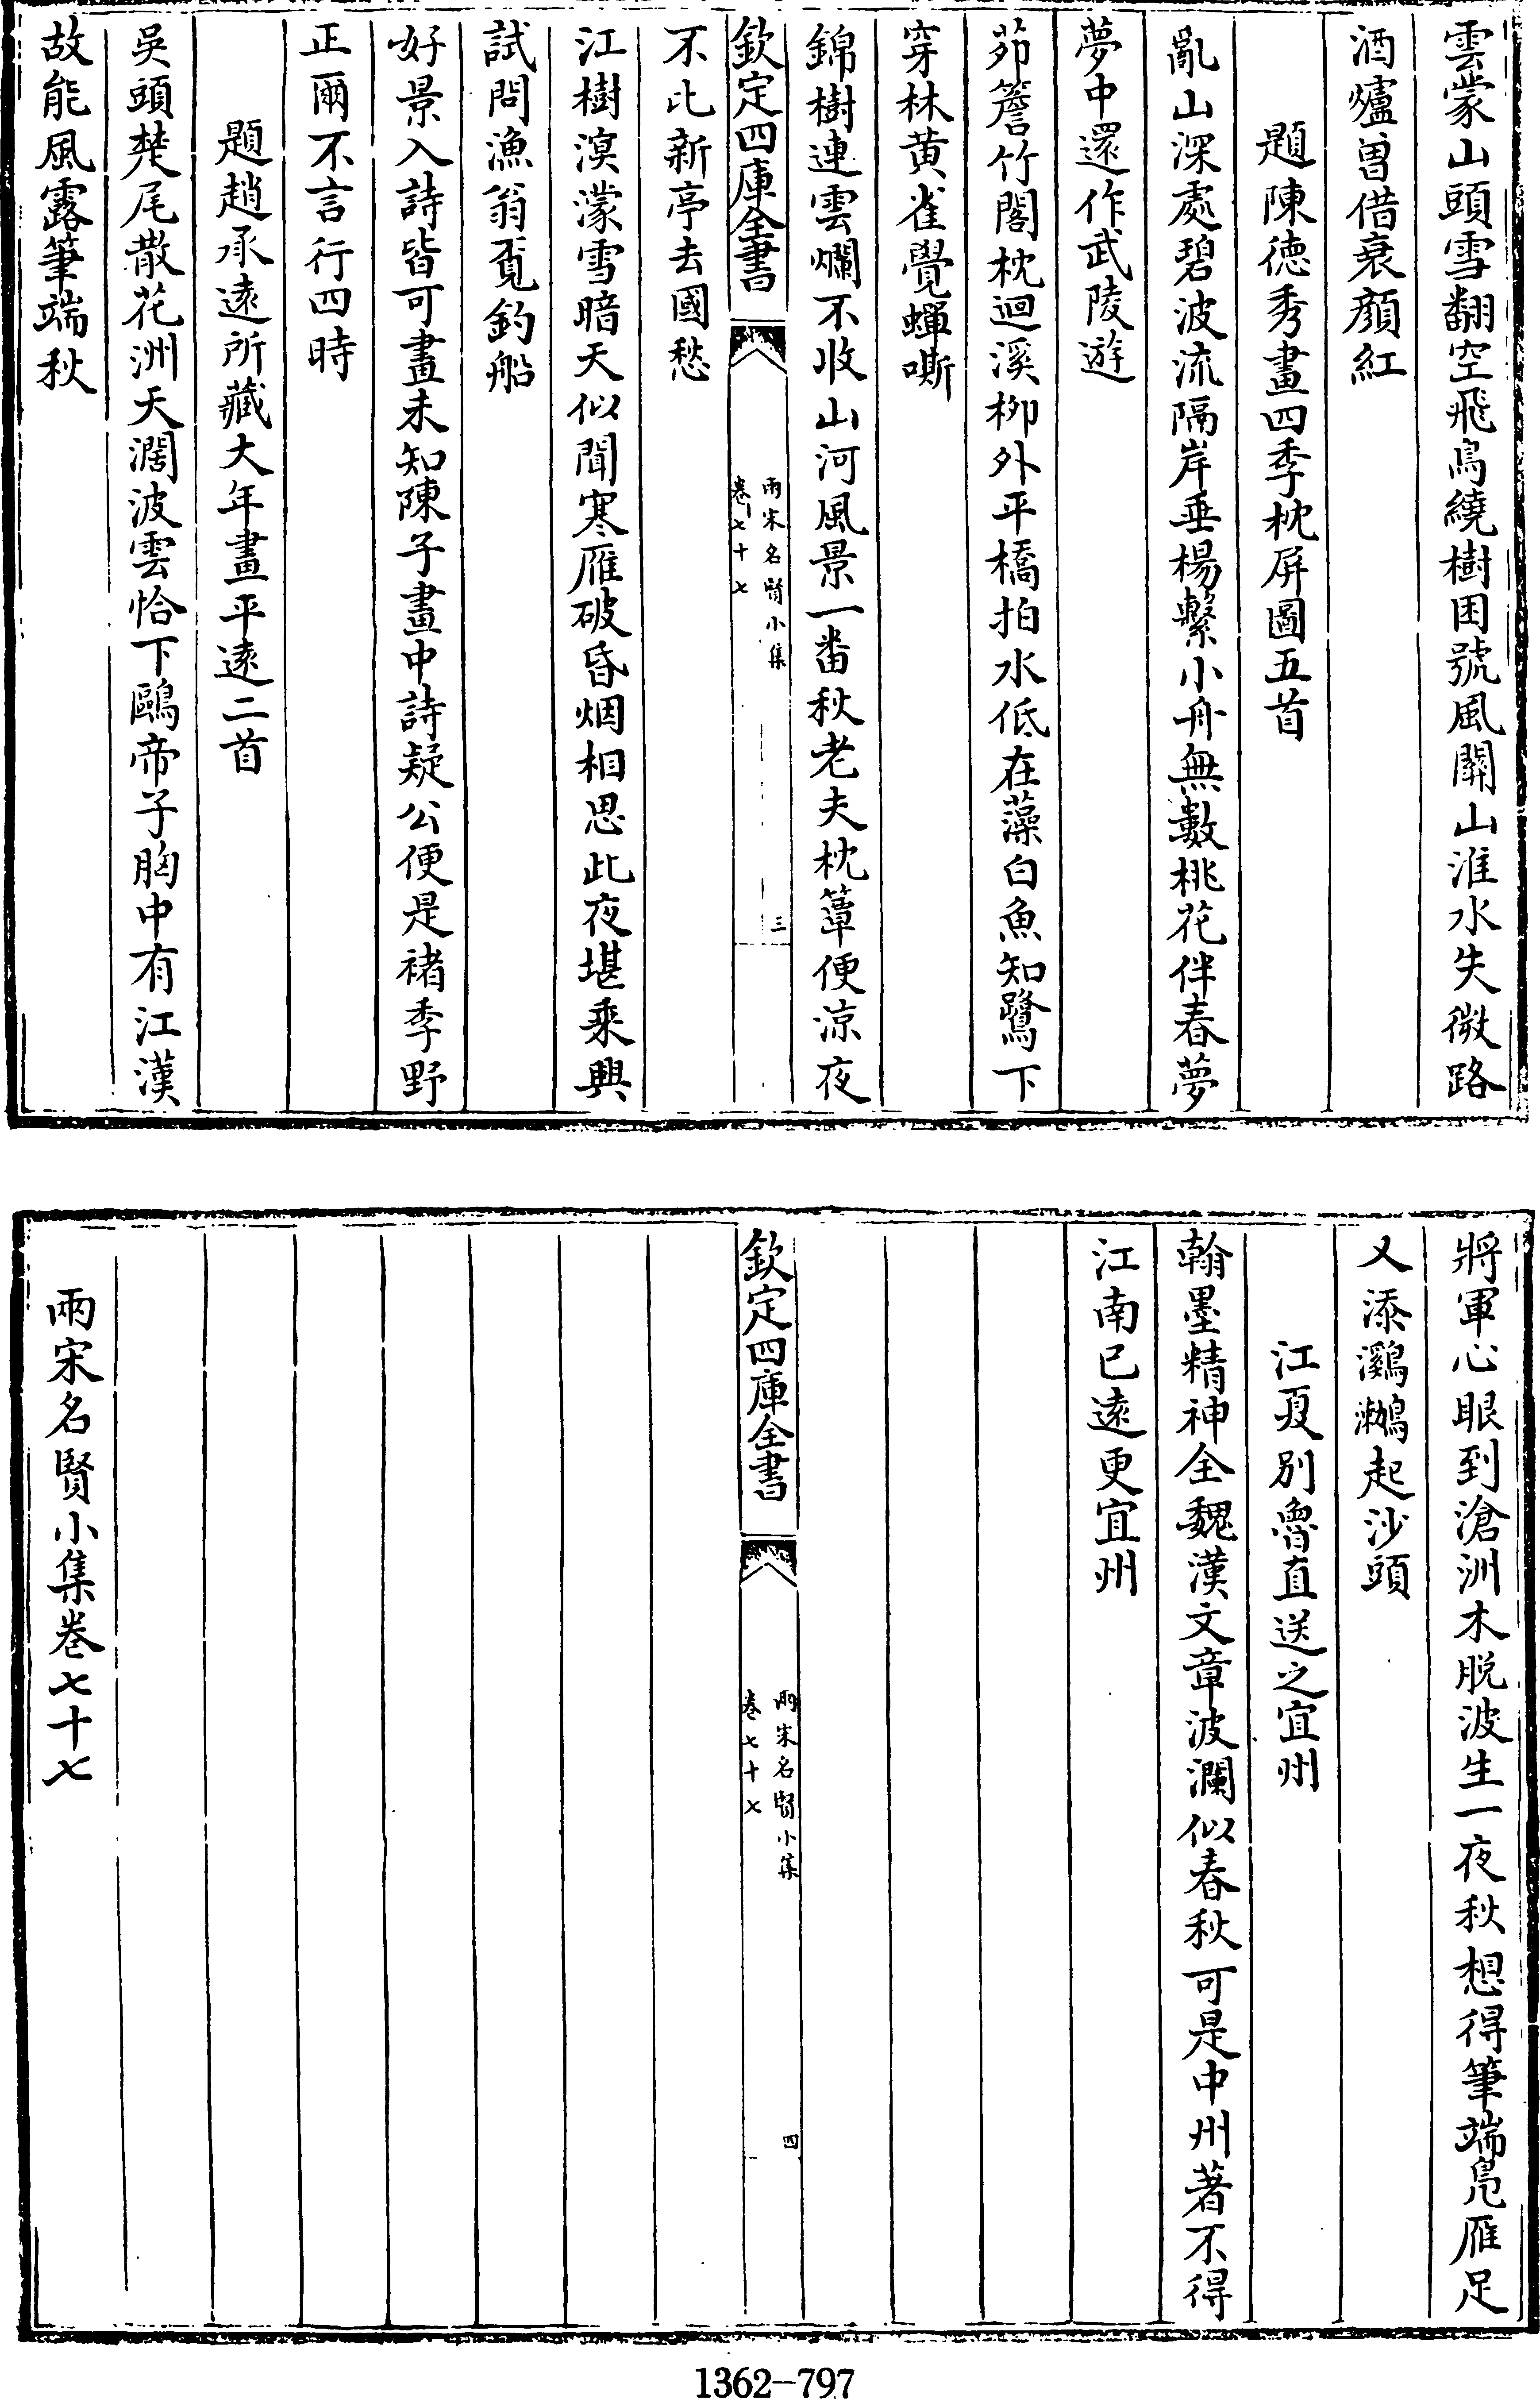 雲蒙山頭雪翻空飛鳥繞樹困號風關山淮水失微路
酒爐曽借衰顔紅
題陳德秀畫四季枕屏圖五首
亂山深處碧波流隔岸垂楊繫小舟無數桃花伴春夢
夢中還作武陵遊
茆簷竹閣枕迴溪栁外平橋拍水低在藻白魚知鷺下
穿林黄雀覺蟬嘶
錦樹連雲爛不收山河風景一番秋老夫枕簟便涼夜
欽定四庫全書
兩宋名賢小集
卷七十七
三
不比新亭去國愁
江樹溟濛雪暗天似聞寒雁破昏烟相思此夜堪乗興
試問漁翁覔釣船
好景入詩皆可畫未知陳子畫中詩疑公便是褚季野
正爾不言行四時
題趙承遠所藏大年畫平遠二首
吳頭楚尾散花洲天濶波雲恰下鷗帝子胸中有江漢
故能風露筆端秋
將軍心眼到滄洲木脱波生一夜秋想得筆端鳧雁足
又添鸂鶒起沙頭
江夏别魯直送之宜州
翰墨精神全魏漢文章波瀾似春秋可是中州著不得
江南已遠更宜州
欽定四庫全書
兩宋名賢小集
卷七十七
四
兩宋名賢小集卷七十七
1362-797